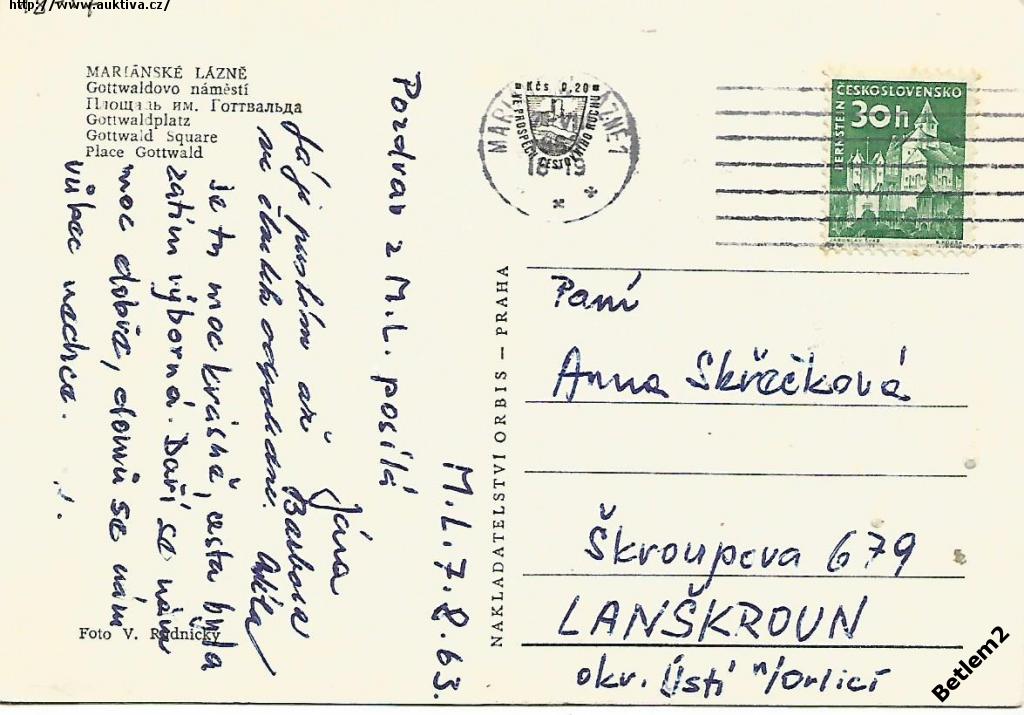 http://www.auktiva.cz/
MARIÁNSKÉ LÁZNĚ
Gottwaldovo náměstí
Площадь им. Готтвальда
Gottwaldplatz
Gottwald Square
Place Gottwald
M.L. 7. 8. 63.
Pozdrav z M.L. posílá
Jána
Barbora
je tu moc krásně, cesta byla
zatím výborná. Daří se nám
moc dobře, domů se nám
vůbec nechce.
Foto V. Rudnický
NAKLADATELSTVÍ ORBIS – PRAHA
Kčs 0,20
VE PROSPĚCH CESTOVNÍHO RUCHU
MARIÁNSKÉ LÁZNĚ 1
18-19
ČESKOSLOVENSKO
30h
BERNŠTEJN
Paní
Anna Skřečková
Škroupova 679
LANŠKROUN
okr. Ústí n/Orlicí
Betlem2